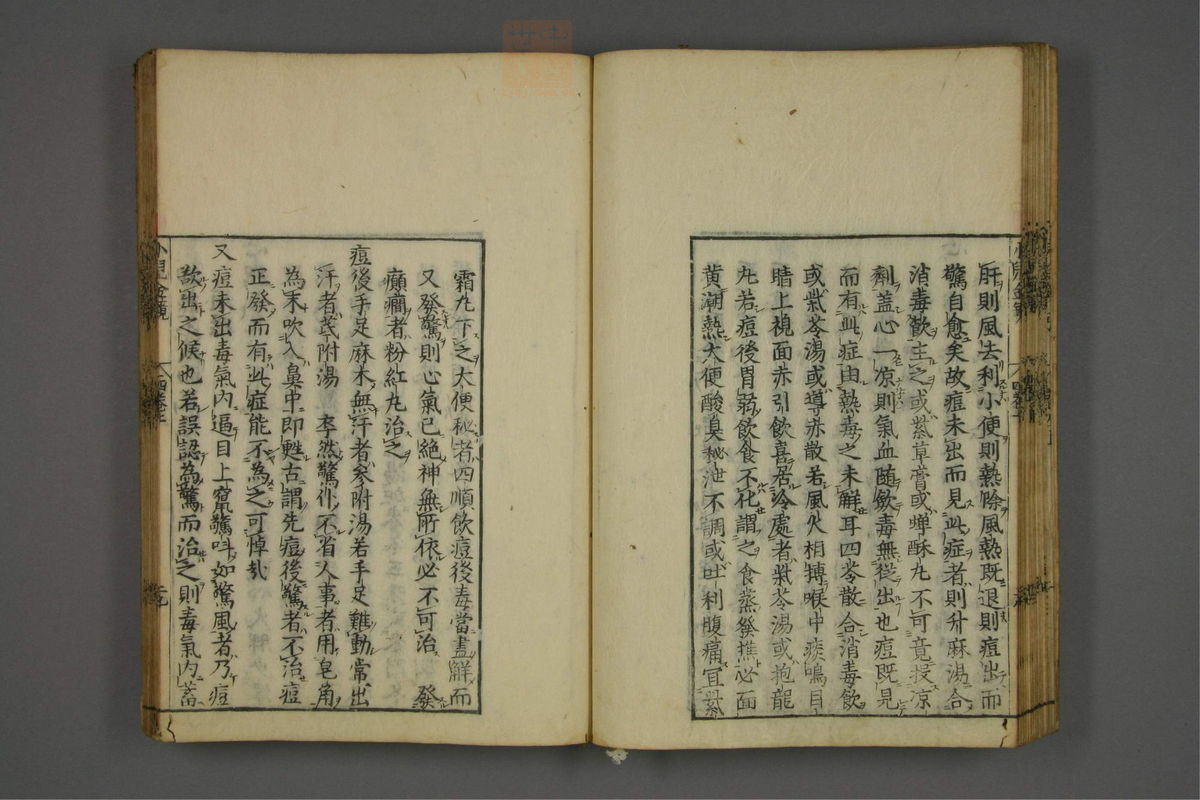 肝則風去利小便則熱除風熱既退則痘出而
驚自愈矣故痘未出而見此症者則升麻湯合
消毒歓主之或紫草膏或蟬酥丸不可竟投凉
劑盖心一凉則氣血随歛毒無從出也痘既見
而有此症由熱毒之未解耳四苓散合消毒飲
或紫苓湯或導赤散若風火相搏喉中痰鳴目
睛上視面赤引飲喜居冷處者紫苓湯或抱龍
丸若痘後胃弱飲食不化謂之食蒸發搐必面
黄潮熱大便酸臭秘泄不調或吐利腹痛宜紫
霜丸下之大便秘者四順飲痘後毒當盡解而
又發驚則心氣已絶神無所依必不可治 發
癲癇者粉紅丸治之
痘後手足麻木無汗者参附湯若手足難動常出
汗者芪附湯 卒然驚仆不省人事者用皂角
為末吹入鼻中即甦古謂先痘後驚者不治痘
正發而有此症能不為之可悼哉
又痘未出毒氣内逼目上竄驚呌如驚風者乃痘
欲出之候也若誤認為驚而治之則毒氣内蓄
小兒
四卷